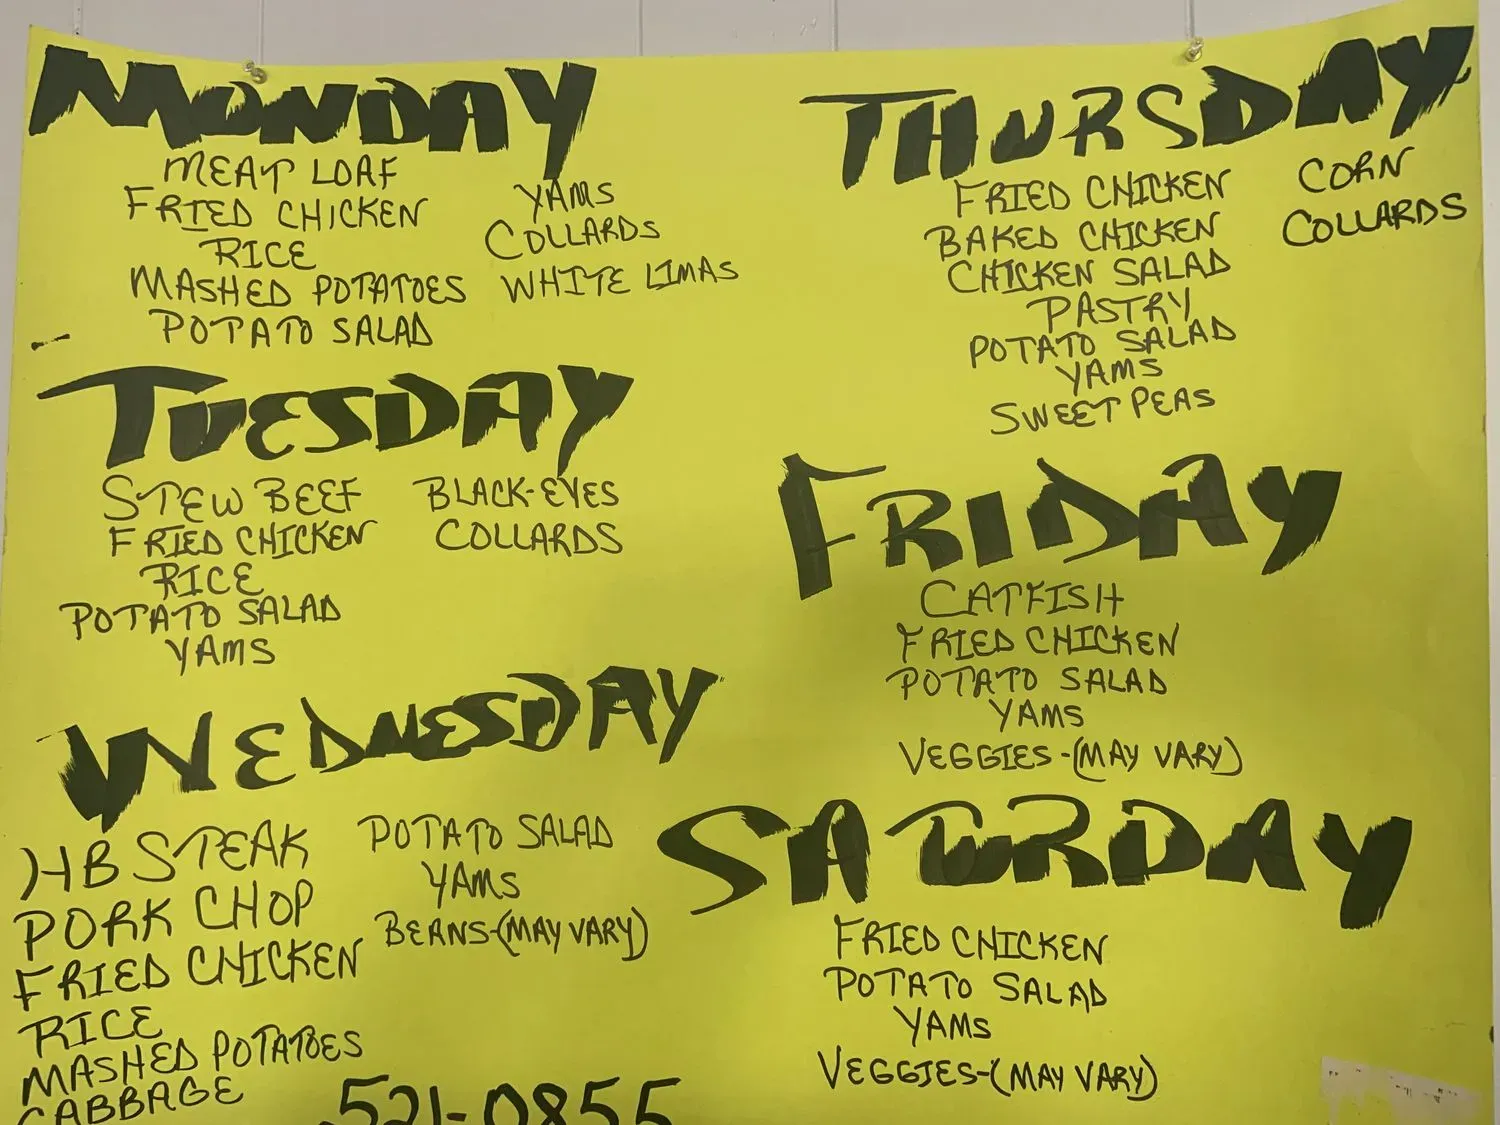 MONDAY
MEAT LOAF
FRIED CHICKEN
RICE
MASHED POTATOES
POTATO SALAD
YAMS
COLLARDS
WHITE LIMAS
TUESDAY
STEW BEEF
FRIED CHICKEN
RICE
POTATO SALAD
YAMS
BLACK-EYES
COLLARDS
WEDNESDAY
HB STEAK
PORK CHOP
FRIED CHICKEN
RICE
MASHED POTATOES
CABBAGE
POTATO SALAD
YAMS
BEANS-(MAY VARY)
THURSDAY
FRIED CHICKEN
BAKED CHICKEN
CHICKEN SALAD
PASTRY
POTATO SALAD
YAMS
SWEET PEAS
CORN
COLLARDS
FRIDAY
CATFISH
FRIED CHICKEN
POTATO SALAD
YAMS
VEGGIES-(MAY VARY)
SATURDAY
FRIED CHICKEN
POTATO SALAD
YAMS
VEGGIES-(MAY VARY)
521-0855